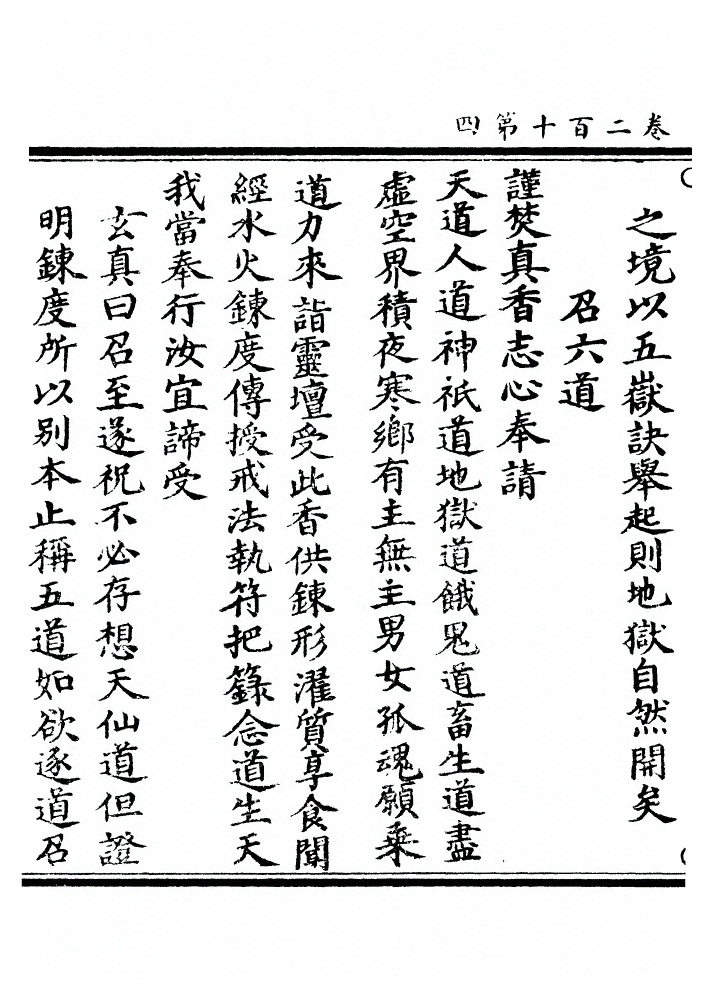 卷二百十第四
之境以五嶽訣舉起則地獄自然開矣
召六道
謹焚真香志心奉請
天道人道神祇道地獄道餓鬼道畜生道盡
虛空界積夜寒鄉有主無主男女孤魂願乘
道力來詣靈壇受此香供鍊形濯質享食聞
經水火鍊度傳授戒法執符把籙念道生天
我當奉行汝宜諦受
玄真曰召至遂祝不必存想天仙道但證
明鍊度所以别本止稱五道如欲逐道召